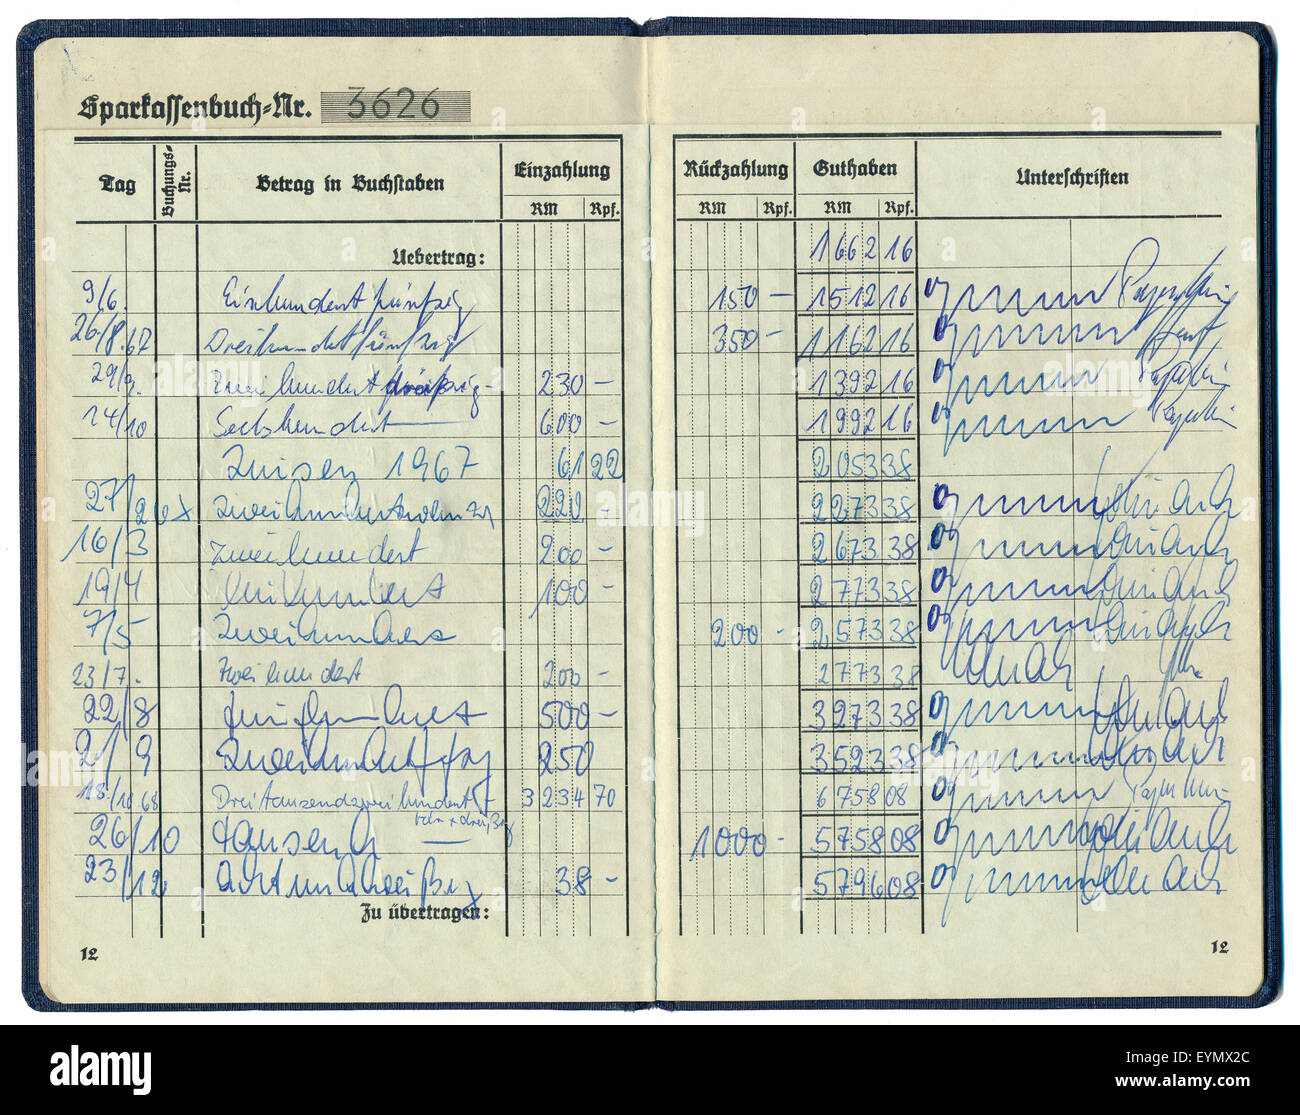 Sparkassenbuch-Nr. 3626
Tag Buchungs-Nr. Betrag in Buchstaben Einzahlung RM Rpf. Rückzahlung RM Rpf. Guthaben RM Rpf. Unterschriften
Uebertrag: 1662 16
9/6. Einhundertfünfzig 150 – 1512 16
26/8.67 Dreihundertfünfzig 350 – 1162 16
29/9. Zweihundertdreißig – 230 – 1392 16
14/10 Sechshundert 600 – 1992 16
Zinsen 1967 61 22 2053 38
27/2 68 220 – 2273 38
16/3 Zweihundert 200 – 2673 38
19/4 Einhundert 100 – 2773 38
7/5 Zweihundert 200 – 2573 38
23/7. Zweihundert 200 – 2773 38
22/8 Fünfhundert 500 – 3273 38
2/9 Zweihundertfzg 250 3523 38
18/10 68 Dreitausendzweihundert 3234 70 6758 08
26/10 tausend 1000 – 5758 08
23/12 Achtunddreißig 38 – 5796 08
Zu übertragen:
12 12
alamy
Image ID: EYMX2C
www.alamy.com